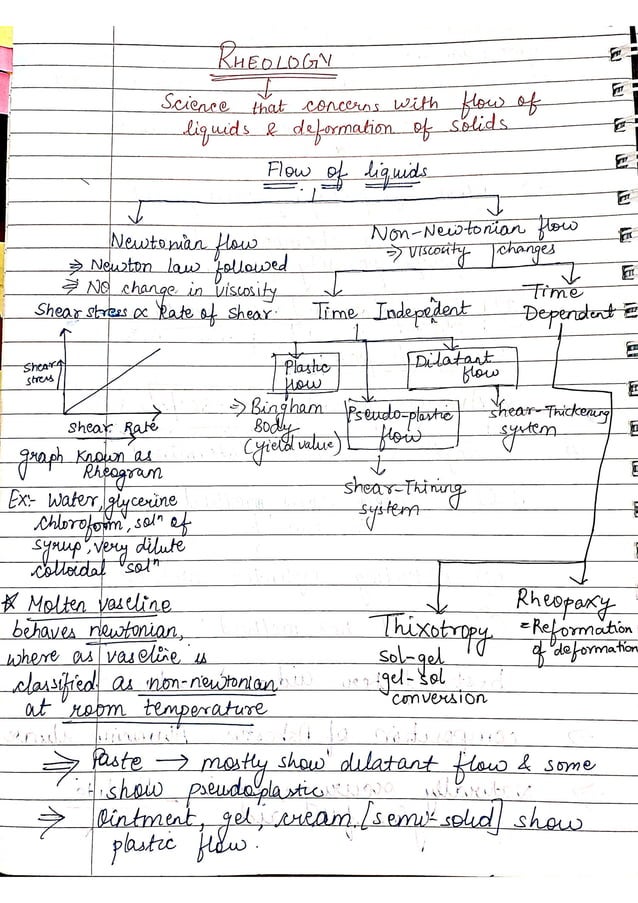 RHEOLOGY
Science that concerns with flow of
liquids & deformation of solids
Flow of liquids
Newtonian flow
⇒ Newton law followed
⇒ No change in viscosity
Shear stress ∝ Rate of Shear.
Non-Newtonian flow
⇒ viscosity changes
Time Indepedent
Time
Dependent
Shear
stress
Shear Rate
graph Known as
Rheogram
Ex:- Water, glycerine
chloroform, solⁿ of
syrup, very dilute
colloidal solⁿ
Plastic
flow
⇒ Bingham
Body
(yield value)
Pseudo-plastic
flow
shear-Thining
system
Dilatant
flow
shear-Thickening
system
* Molten vaseline
behaves newtonian,
where as vaseline is
classified as non-newtonian
at room temperature
Thixotropy
sol-gel
gel-sol
conversion
Rheopaxy
= Reformation
of deformation
⇒ Paste → mostly show dilatant flow & some
show pseudoplastic
⇒ Ointment, gel, cream [semi-solid] show
plastic flow.